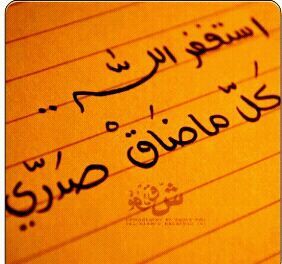 استغفر الله..
كلّ ما ضاقْ صدري